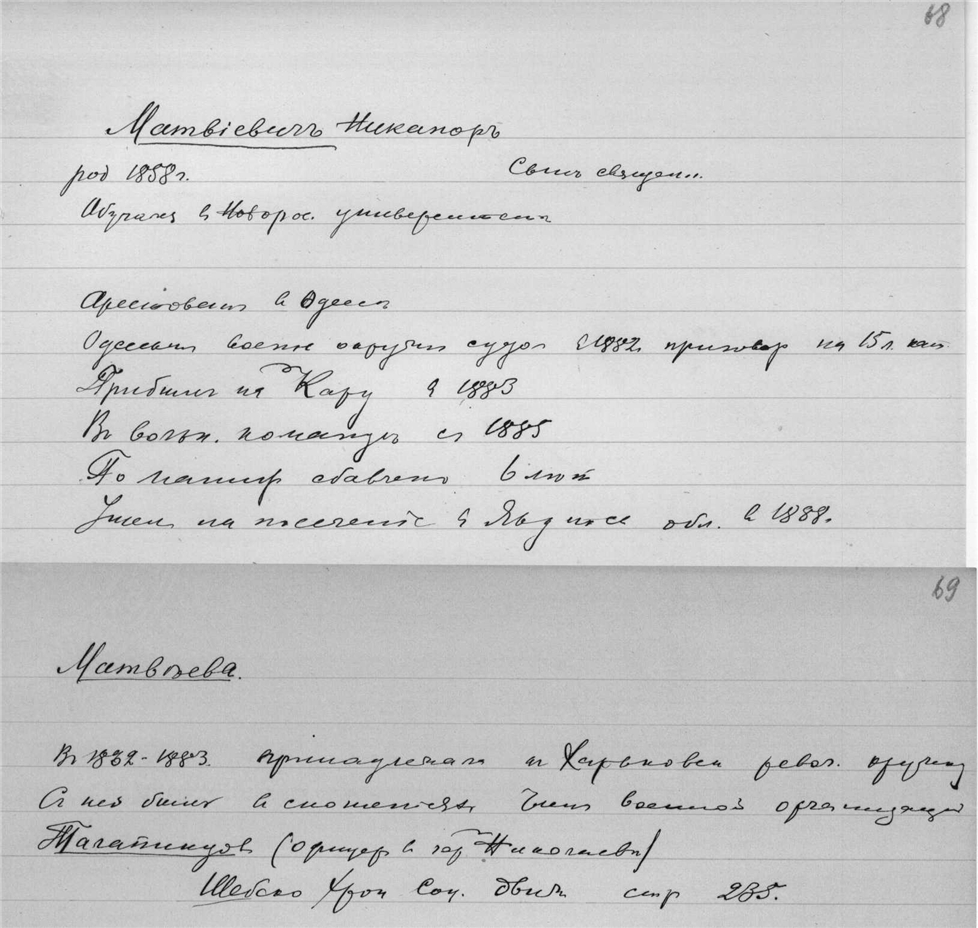 68
Матвіевичъ Никаноръ
род 1858 г. Сынъ священ.
Обучался в Новорос. университетѣ
Арестованъ в Одессѣ
Одесским военн окружн судом в 1882 приговор на 15 л. кат
Прибылъ на Кару в 1883
Въ вольн. командѣ съ 1885
По маниф сбавлено 6 лѣт
Ушелъ на поселеніе в Якутск обл. в 1888.
69
Матвѣева.
Въ 1882-1883 принадлежала к Харьковск револ. кружку
Съ ней былъ в сношеніяхъ членъ военной организаціи
Талапиндов (офицер в гор Николаевѣ)
Шебеко Хрон Соц. движ стр 235.